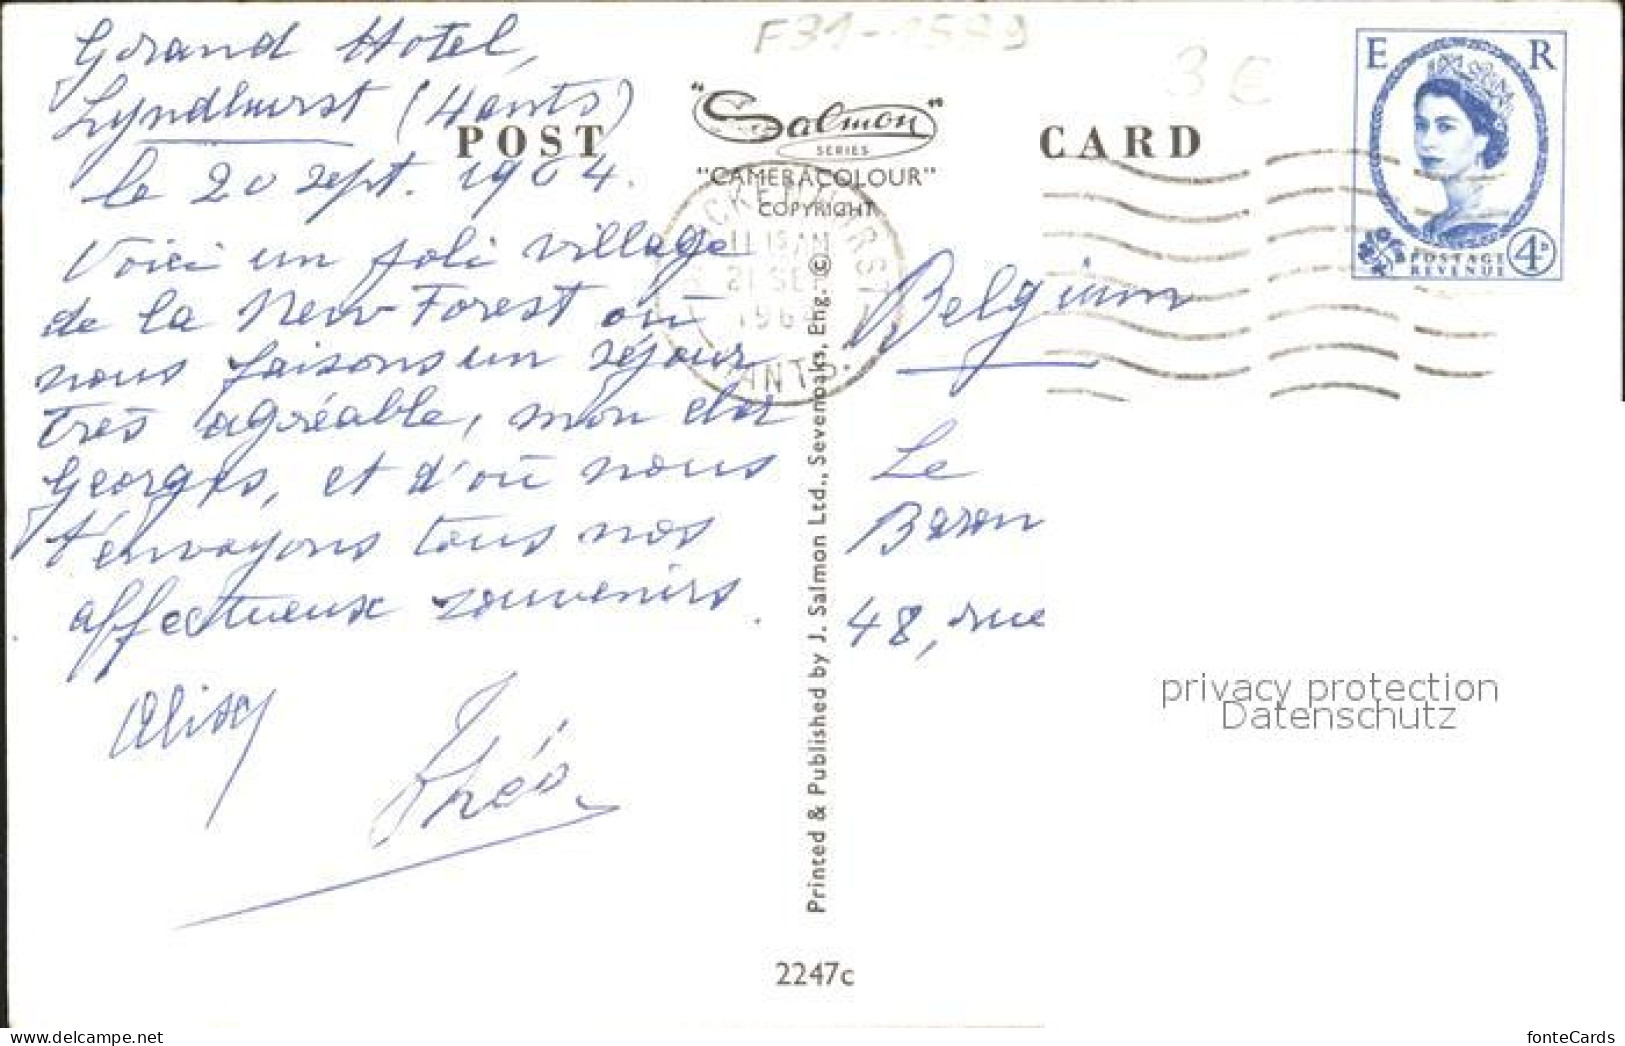 F31-1599
3 €
Grand Hotel,
Lyndhurst (Hants)
le 20 sept. 1964.
Voici un joli village
de la New-Forest où
nous faisons un séjour
très agréable, mon cher
Georges, et d'où nous
t'envoyons tous nos
affectueux souvenirs.
Alixy
Théo
POST CARD
"Salmon"
SERIES
"CAMERACOLOUR"
COPYRIGHT
BROCKENHURST
11 15 AM
21 SEP
1964
HANTS.
E R
POSTAGE
REVENUE
4D
Belgium
Le
Baron
48, rue
Printed & Published by J. Salmon Ltd., Sevenoaks, Eng. ©
2247c
privacy protection
Datenschutz
www.delcampe.net
fonteCards